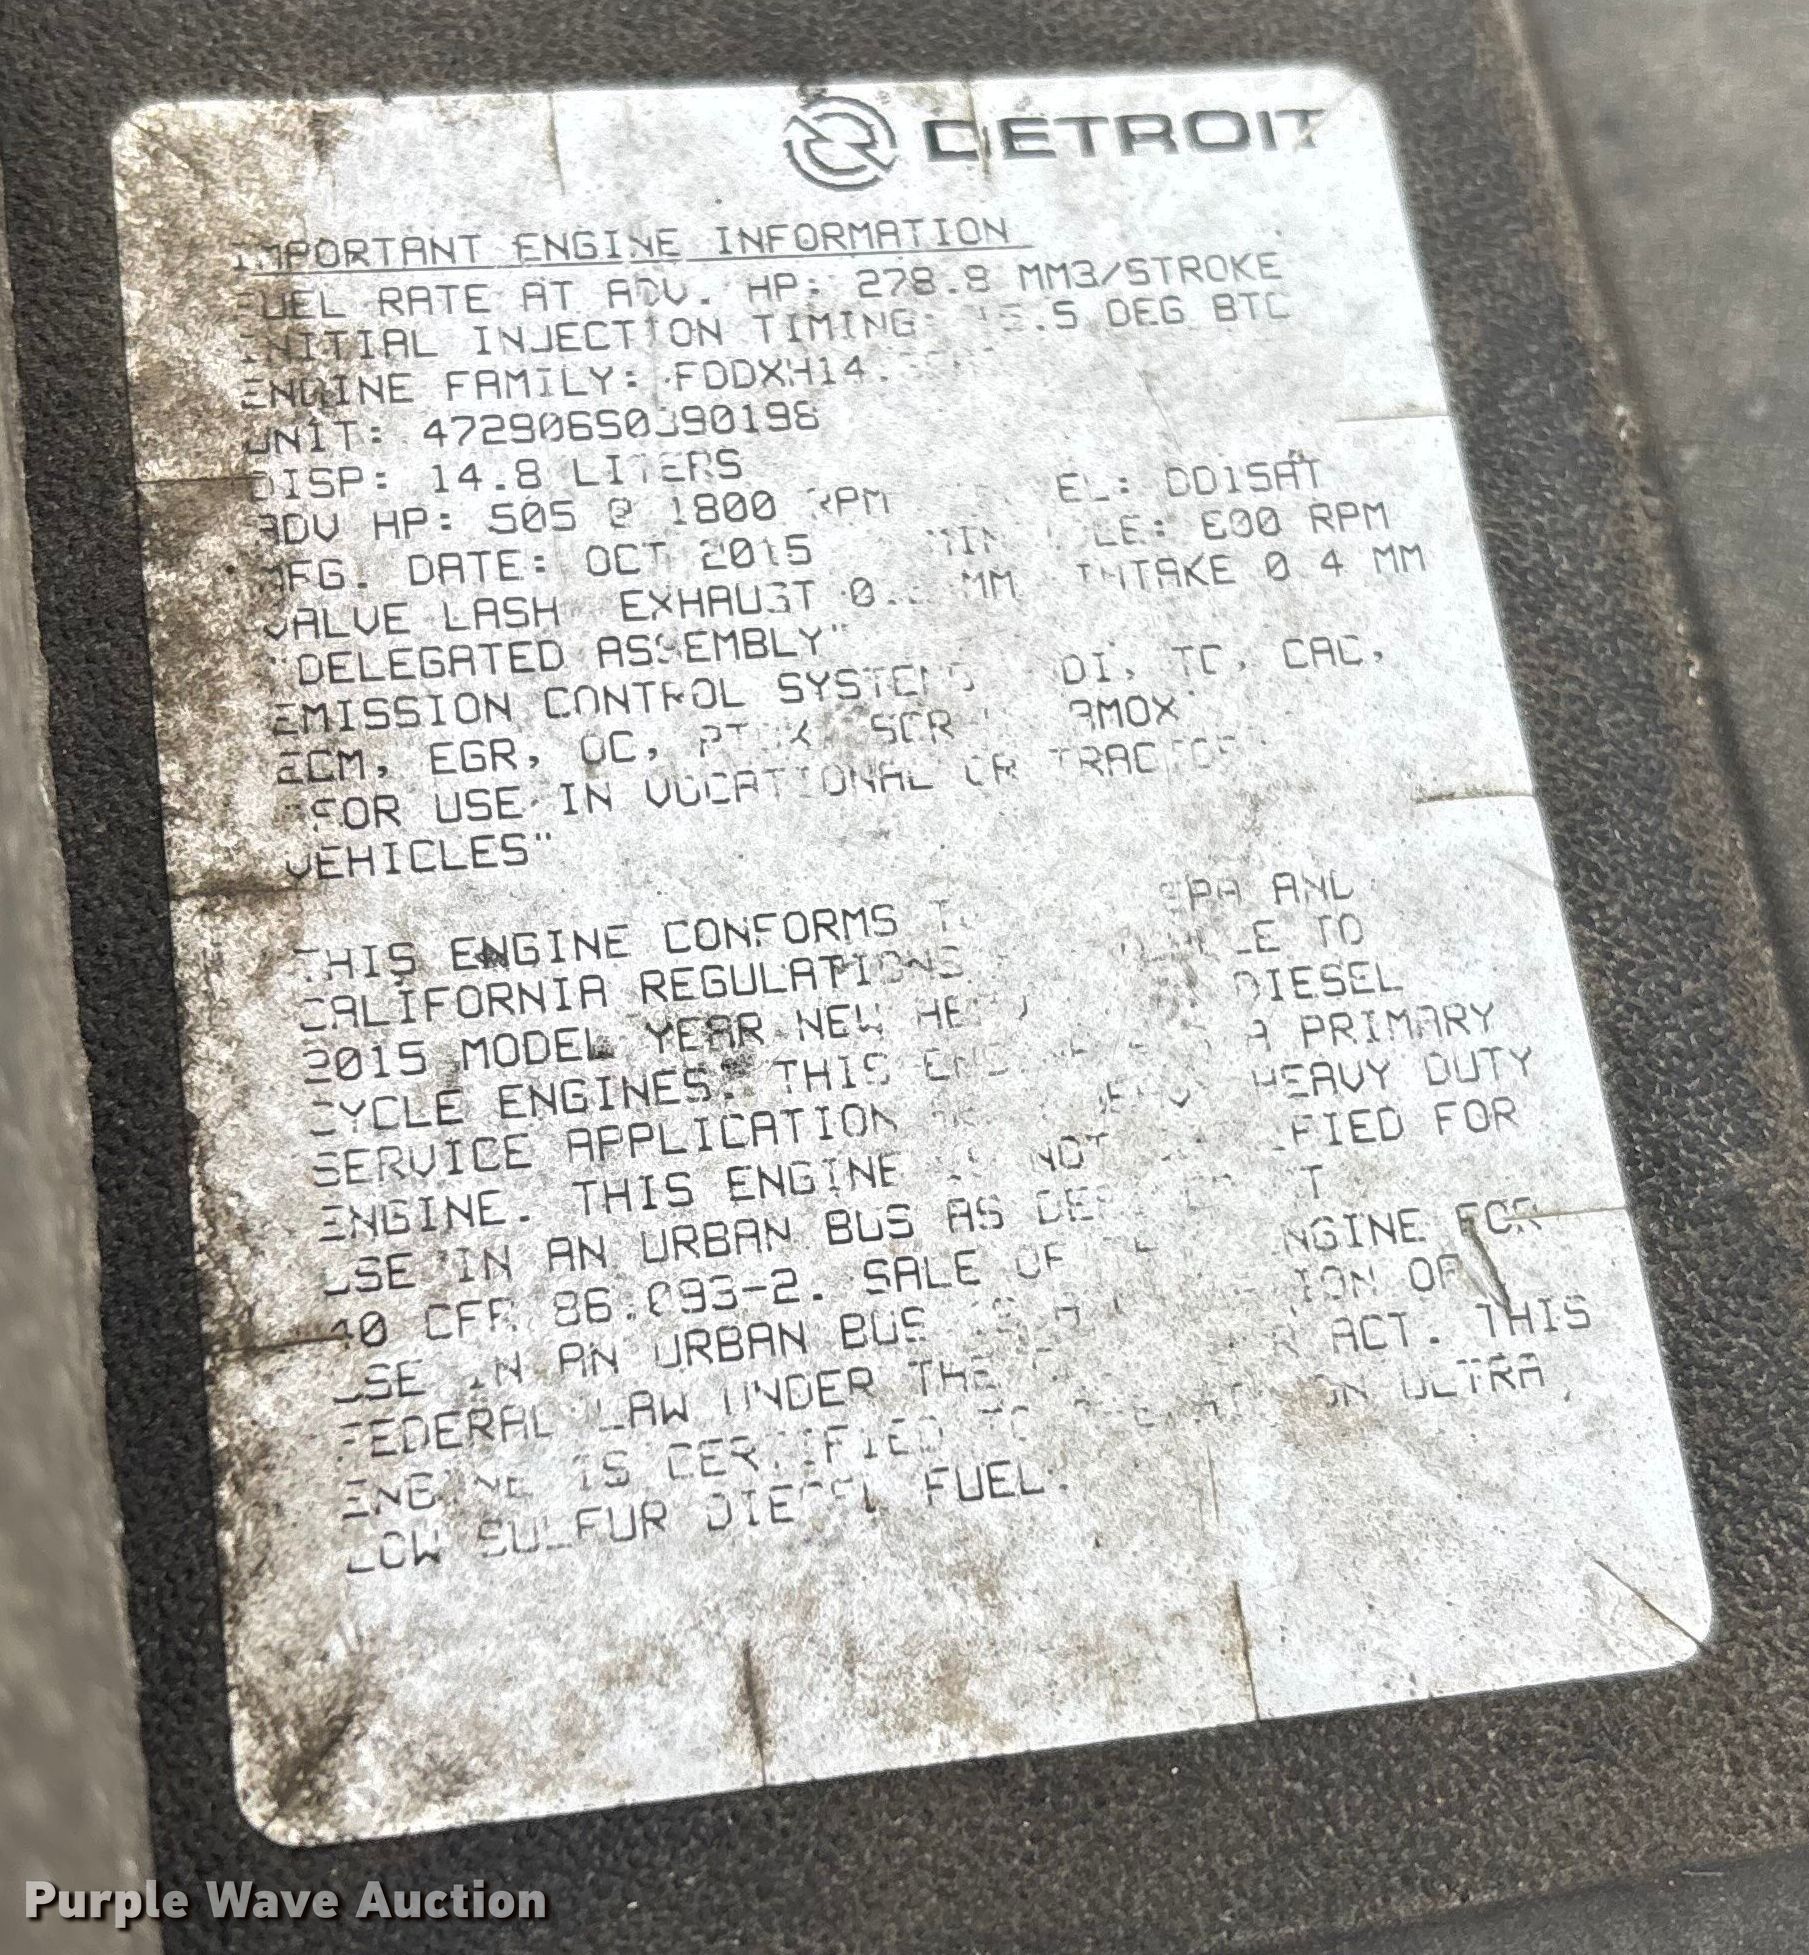 DETROIT
IMPORTANT ENGINE INFORMATION
FUEL RATE AT ADV. HP: 278.8 MM3/STROKE
INITIAL INJECTION TIMING: DEG BTC
ENGINE FAMILY:
UNIT:
DISP: 14.8 LITERS
ADV HP: 505 @ 1800 RPM DD15AT
MFG. DATE: OCT 2015 MIN RPM
VALVE LASH EXHAUST MM INTAKE 0.4 MM
"DELEGATED ASSEMBLY"
EMISSION CONTROL SYSTEMS DI, TC, CAC,
ECM, EGR, OC, SCR
"FOR USE IN VOCATIONAL OR TRACTOR
VEHICLES"
THIS ENGINE CONFORMS TO EPA AND
CALIFORNIA REGULATIONS TO
2015 MODEL YEAR NEW DIESEL
CYCLE ENGINES. THIS ENGINE A PRIMARY
SERVICE APPLICATION HEAVY DUTY
ENGINE. THIS ENGINE IS NOT FOR
USE IN AN URBAN BUS AS
40 CFR 86.093-2. SALE OF ENGINE FOR
USE IN AN URBAN BUS IS OF
FEDERAL LAW UNDER THE ACT. THIS
ENGINE IS CERTIFIED TO ON ULTRA
LOW SULFUR DIESEL FUEL.
Purple Wave Auction